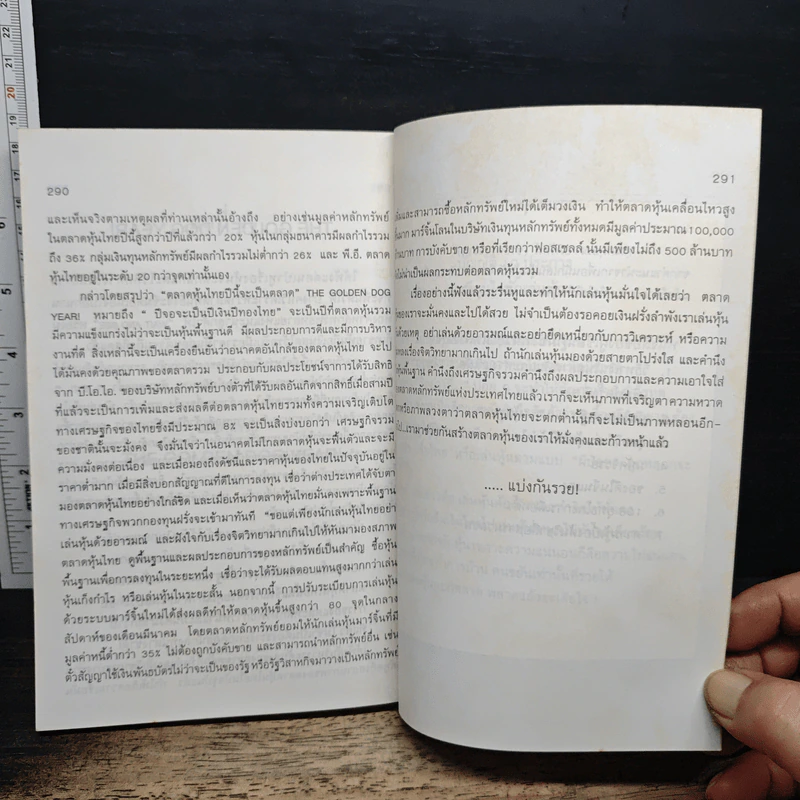 290
และเห็นจริงตามเหตุผลที่ท่านเหล่านั้นอ้างถึง อย่างเช่นมูลค่าหลักทรัพย์
ในตลาดหุ้นไทยปีนี้สูงกว่าปีที่แล้วกว่า 20% หุ้นในกลุ่มธนาคารมีผลกำไรรวม
ถึง 36% กลุ่มเงินทุนหลักทรัพย์มีผลกำไรรวมไม่ต่ำกว่า 26% และ พี.อี. ตลาด
หุ้นไทยอยู่ในระดับ 20 กว่าจุดเท่านั้นเอง
กล่าวโดยสรุปว่า “ตลาดหุ้นไทยปีนี้จะเป็นตลาด” THE GOLDEN DOG
YEAR! หมายถึง “ ปีจอจะเป็นปีเงินปีทองไทย” จะเป็นปีที่ตลาดหุ้นรวม
มีความแข็งแกร่งไม่ว่าจะเป็นหุ้นพื้นฐานดี มีผลประกอบการดีและมีการบริหาร
งานที่ดี สิ่งเหล่านี้จะเป็นเครื่องยืนยันว่าอนาคตอันใกล้ของตลาดหุ้นไทย จะไป
ได้มั่นคงด้วยคุณภาพของตลาดรวม ประกอบกับผลประโยชน์จากการได้รับสิทธิ
จาก บี.โอ.ไอ. ของบริษัทหลักทรัพย์บางตัวที่ได้รับผลอันเกิดจากสิทธิ์เมื่อสามปี
ที่แล้วจะเป็นการเพิ่มและส่งผลดีต่อตลาดหุ้นไทยรวมทั้งความเจริญเติบโต
ทางเศรษฐกิจของไทยซึ่งมีประมาณ 8% จะเป็นสิ่งบ่งบอกว่า เศรษฐกิจรวม
ของชาตินั้นจะมั่นคง จึงมั่นใจว่าในอนาคตไม่ไกลตลาดหุ้นจะฟื้นตัวและจะมี
ความมั่นคงต่อเนื่อง และเมื่อมองถึงดัชนีและราคาหุ้นของไทยในปัจจุบันอยู่ใน
ราคาต่ำมาก เมื่อมีสิ่งบอกสัญญาณที่ดีในการลงทุน เชื่อว่าต่างประเทศได้จับตา
มองตลาดหุ้นไทยอย่างใกล้ชิด และเมื่อเห็นว่าตลาดไทยมั่นคงเพราะพื้นฐาน
ทางเศรษฐกิจพวกกองทุนฝรั่งจะเข้ามาทันที “ขอแต่เพียงนักเล่นหุ้นไทยอย่า
เล่นหุ้นด้วยอารมณ์ และฝังใจกับเรื่องจิตวิทยามากเกินไปให้หันมามองสภาพ
ตลาดหุ้นไทย ดูพื้นฐานและผลประกอบการของหลักทรัพย์เป็นสำคัญ ซื้อหุ้น
พื้นฐานเพื่อการลงทุนในระยะหนึ่ง เชื่อว่าจะได้รับผลตอบแทนสูงมากกว่าเล่น
หุ้นเก็งกำไร หรือเล่นหุ้นในระยะสั้น นอกจากนี้ การปรับระเบียบการเล่นหุ้น
ด้วยระบบมาร์จิ้นใหม่ได้ส่งผลดีทำให้ตลาดหุ้นขึ้นสูงกว่า 80 จุดในกลาง
สัปดาห์ของเดือนมีนาคม โดยตลาดหลักทรัพย์ยอมให้นักเล่นหุ้นมาร์จิ้นที่มี
มูลค่าหนี้ต่ำกว่า 35% ไม่ต้องถูกบังคับขาย และสามารถนำหลักทรัพย์อื่น เช่น
ตั๋วสัญญาใช้เงินพันธบัตรไม่ว่าจะเป็นของรัฐ หรือรัฐวิสาหกิจมาวางเป็นหลักทรัพย์
291
และสามารถซื้อหลักทรัพย์ใหม่ได้เต็มวงเงิน ทำให้ตลาดหุ้นเคลื่อนไหวสูง
มาก มาร์จิ้นโลนในบริษัทเงินทุนหลักทรัพย์ทั้งหมดมีมูลค่าประมาณ 100,000
บาท การบังคับขาย หรือที่เรียกว่าฟอสเซลล์ นั้นมีเพียงไม่ถึง 500 ล้านบาท
ไม่น่าเป็นผลกระทบต่อตลาดหุ้นรวม
เรื่องอย่างนี้ฟังแล้วระรื่นหูและทำให้นักเล่นหุ้นมั่นใจได้เลยว่า ตลาด
ของเราจะมั่นคงและไปได้สวย ไม่จำเป็นต้องรอคอยเงินฝรั่งลำพังเราเล่นหุ้น
ด้วยเหตุ อย่าเล่นด้วยอารมณ์และอย่ายึดเหนี่ยวกับการวิเคราะห์ หรือความ
เรื่องจิตวิทยามากเกินไป ถ้านักเล่นหุ้นมองด้วยสายตาโปร่งใส และคำนึง
พื้นฐาน คำนึงถึงเศรษฐกิจรวมคำนึงถึงผลประกอบการและความเอาใจใส่
ตลาดหลักทรัพย์แห่งประเทศไทยแล้วเราก็จะเห็นภาพที่เจริญตาความหวาด
หรือภาพลวงตาว่าตลาดหุ้นไทยจะตกต่ำนั้นก็จะไม่เป็นภาพหลอนอีก-
ไป...เรามาช่วยกันสร้างตลาดหุ้นของเราให้มั่นคงและก้าวหน้าแล้ว
..... แบ่งกันรวย!